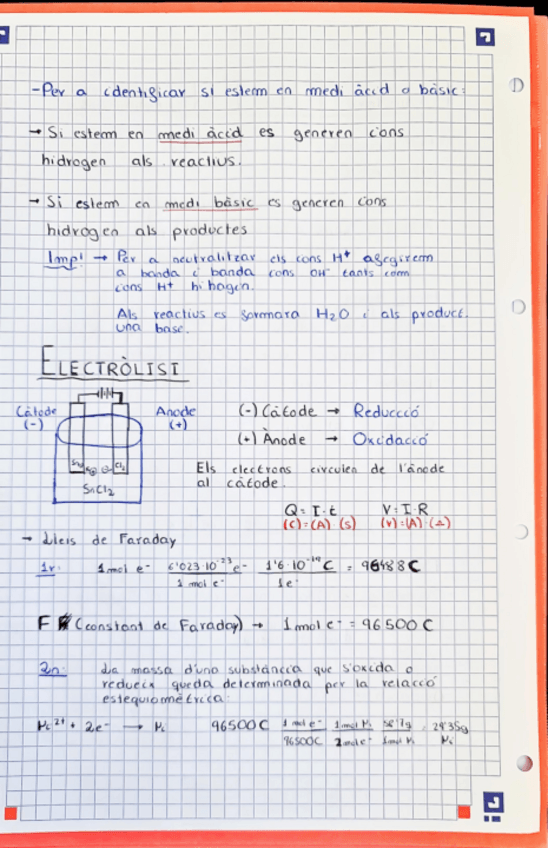 -Per a identificar si estem en medi àcid o bàsic:
→ Si estem en medi àcid es generen ions
hidrogen als reactius.
→ Si estem en medi bàsic es generen ions
hidrogen als productes
Imp! → Per a neutralitzar els ions H⁺ afegirem
a banda i banda ions OH⁻ tants com
ions H⁺ hi hagen.
Als reactius es formara H₂O i als product.
una base.
ELECTRÒLISI
Càtode
(-)
Anode
(+)
SnCl₂
(-) Càtode → Reducció
(+) Ànode → Oxidació
Els electrons circulen de l'ànode
al càtode.
Q = I·t V = I·R
(C) = (A)·(s) (V) = (A)·(Ω)
→ Lleis de Faraday
1r: 1 mol e⁻ 6'023·10⁻²³ e⁻ / 1 mol e⁻ 1'6·10⁻¹⁹ C / 1e⁻ = 96488 C
F (constant de Faraday) → 1 mol e⁻ = 96500 C
2n: La massa d'una substància que s'oxida o
redueix queda determinada per la relació
estequiomètrica:
Ni²⁺ + 2e⁻ → Ni 96500C 1 mol e⁻ / 96500C 1 mol Ni / 2 mol e⁻ 58'7g / 1 mol Ni = 29'35g Ni